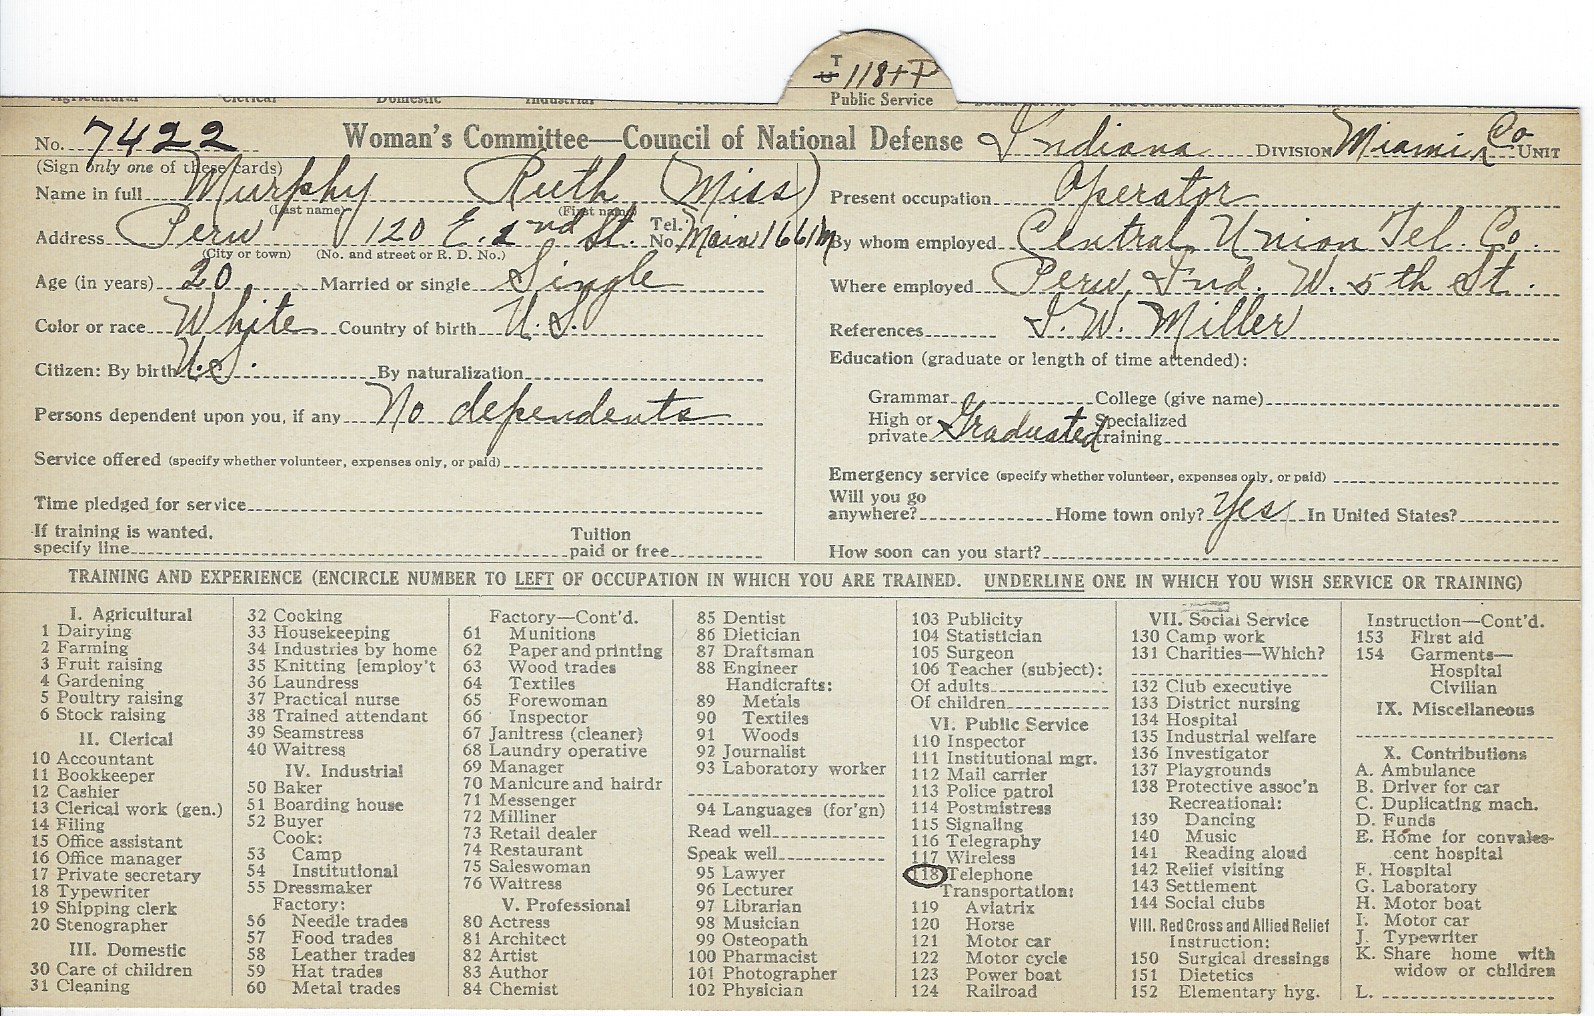 T
U 118+P
Public Service
No. 7422 Woman's Committee—Council of National Defense Indiana DIVISION Miami Co. UNIT
(Sign only one of these cards)
Name in full Murphy Ruth (Miss)
(Last name) (First name)
Address Peru 120 E. 2nd St. Tel. No. Main 1661M
(City or town) (No. and street or R. D. No.)
Age (in years) 20 Married or single Single
Color or race White Country of birth U.S.
Citizen: By birth U.S. By naturalization
Persons dependent upon you, if any No dependents
Service offered (specify whether volunteer, expenses only, or paid)
Time pledged for service
If training is wanted, specify line Tuition paid or free
Present occupation Operator
By whom employed Central Union Tel. Co.
Where employed Peru, Ind. W. 5th St.
References W. Miller
Education (graduate or length of time attended):
Grammar College (give name)
High or private Graduated Specialized training
Emergency service (specify whether volunteer, expenses only, or paid)
Will you go anywhere? Home town only? Yes In United States?
How soon can you start?
TRAINING AND EXPERIENCE (ENCIRCLE NUMBER TO LEFT OF OCCUPATION IN WHICH YOU ARE TRAINED. UNDERLINE ONE IN WHICH YOU WISH SERVICE OR TRAINING)
I. Agricultural
1 Dairying
2 Farming
3 Fruit raising
4 Gardening
5 Poultry raising
6 Stock raising
II. Clerical
10 Accountant
11 Bookkeeper
12 Cashier
13 Clerical work (gen.)
14 Filing
15 Office assistant
16 Office manager
17 Private secretary
18 Typewriter
19 Shipping clerk
20 Stenographer
III. Domestic
30 Care of children
31 Cleaning
32 Cooking
33 Housekeeping
34 Industries by home
35 Knitting [employ't
36 Laundress
37 Practical nurse
38 Trained attendant
39 Seamstress
40 Waitress
IV. Industrial
50 Baker
51 Boarding house
52 Buyer
Cook:
53 Camp
54 Institutional
55 Dressmaker
Factory:
56 Needle trades
57 Food trades
58 Leather trades
59 Hat trades
60 Metal trades
Factory—Cont'd.
61 Munitions
62 Paper and printing
63 Wood trades
64 Textiles
65 Forewoman
66 Inspector
67 Janitress (cleaner)
68 Laundry operative
69 Manager
70 Manicure and hairdr
71 Messenger
72 Milliner
73 Retail dealer
74 Restaurant
75 Saleswoman
76 Waitress
V. Professional
80 Actress
81 Architect
82 Artist
83 Author
84 Chemist
85 Dentist
86 Dietician
87 Draftsman
88 Engineer
Handicrafts:
89 Metals
90 Textiles
91 Woods
92 Journalist
93 Laboratory worker
94 Languages (for'gn)
Read well
Speak well
95 Lawyer
96 Lecturer
97 Librarian
98 Musician
99 Osteopath
100 Pharmacist
101 Photographer
102 Physician
103 Publicity
104 Statistician
105 Surgeon
106 Teacher (subject):
Of adults
Of children
VI. Public Service
110 Inspector
111 Institutional mgr.
112 Mail carrier
113 Police patrol
114 Postmistress
115 Signaling
116 Telegraphy
117 Wireless
118 Telephone
Transportation:
119 Aviatrix
120 Horse
121 Motor car
122 Motor cycle
123 Power boat
124 Railroad
VII. Social Service
130 Camp work
131 Charities—Which?
132 Club executive
133 District nursing
134 Hospital
135 Industrial welfare
136 Investigator
137 Playgrounds
138 Protective assoc'n
Recreational:
139 Dancing
140 Music
141 Reading aloud
142 Relief visiting
143 Settlement
144 Social clubs
VIII. Red Cross and Allied Relief
Instruction:
150 Surgical dressings
151 Dietetics
152 Elementary hyg.
Instruction—Cont'd.
153 First aid
154 Garments—
Hospital
Civilian
IX. Miscellaneous
X. Contributions
A. Ambulance
B. Driver for car
C. Duplicating mach.
D. Funds
E. Home for convales-
cent hospital
F. Hospital
G. Laboratory
H. Motor boat
I. Motor car
J. Typewriter
K. Share home with
widow or children
L.